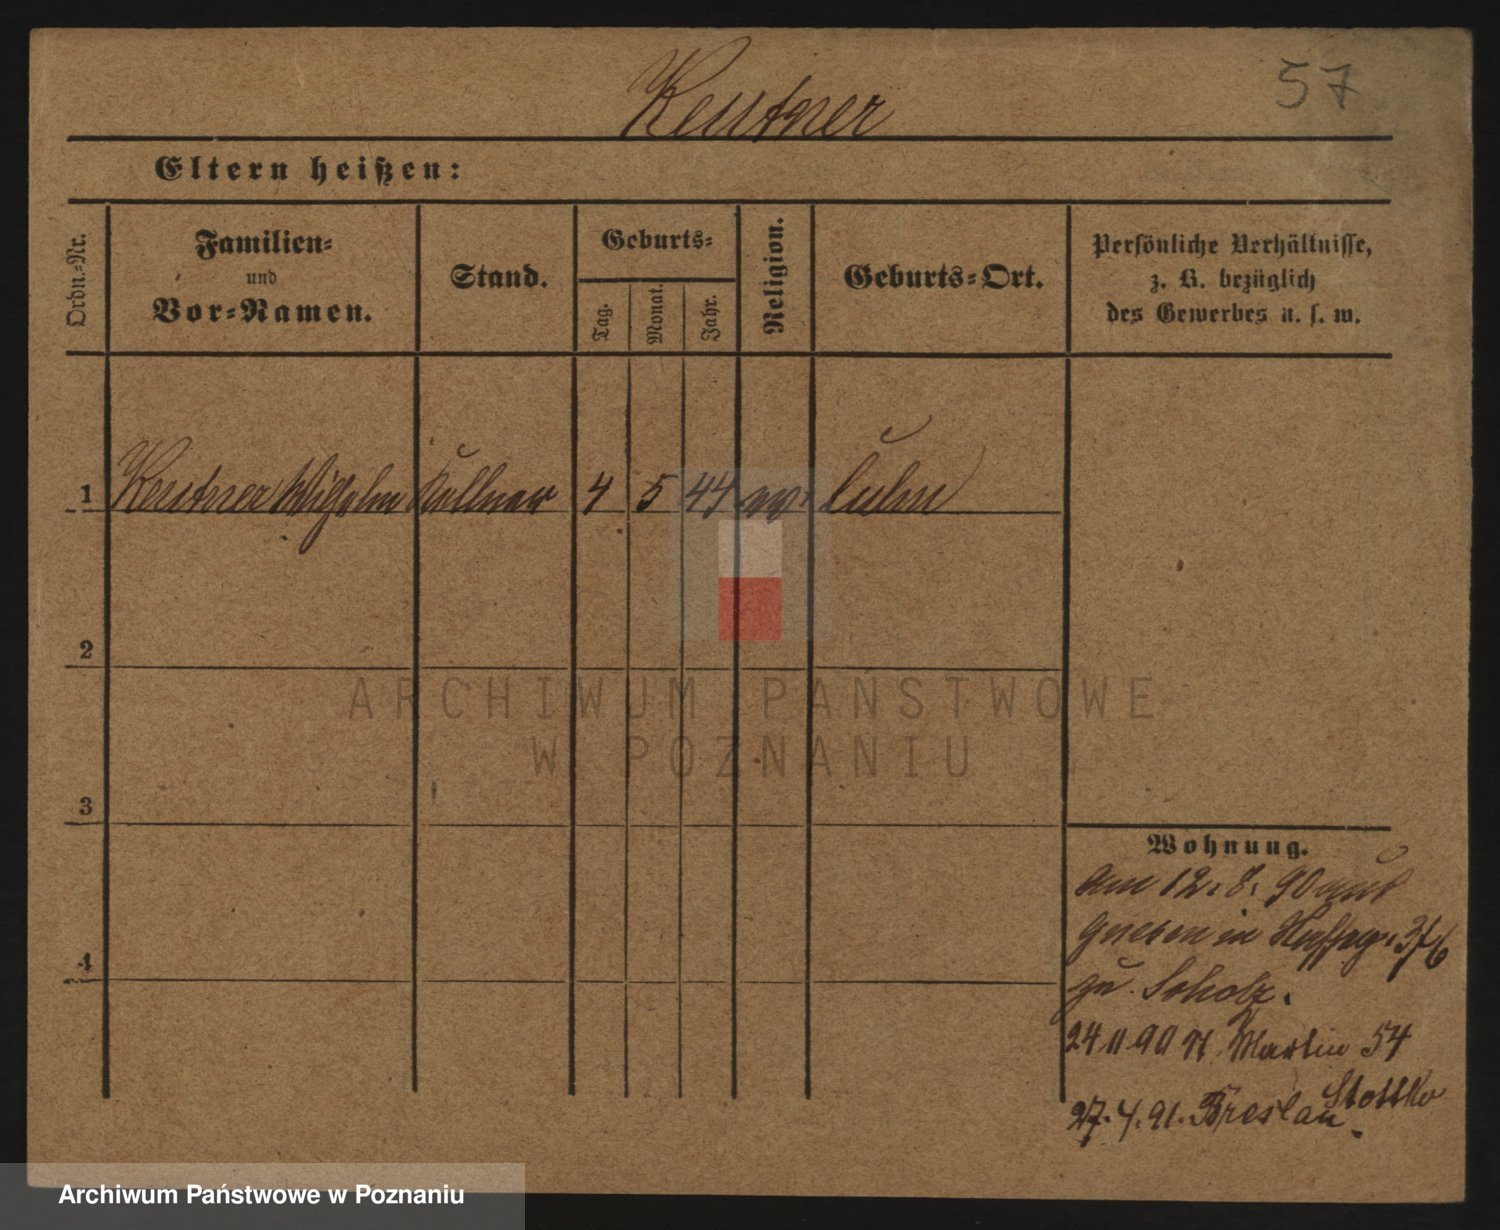 Keutner
57
Eltern heißen:
Ordn.-Nr.
Familien-
und
Vor-Namen.
Stand.
Geburts-
Tag.
Monat.
Jahr.
Religion.
Geburts-Ort.
Persönliche Verhältnisse,
z. B. bezüglich
des Gewerbes u. s. w.
1 Keutner Wilhelm Kellner 4 5 44 ev.
2
3
4
Wohnung.
Am 12. 8. 90 aus
Gnesen in 376
zu Scholz.
24 11 90 St. Martin 54
Stottko
27. 4. 91. Breslau.
ARCHIWUM PAŃSTWOWE
W POZNANIU
Archiwum Państwowe w Poznaniu